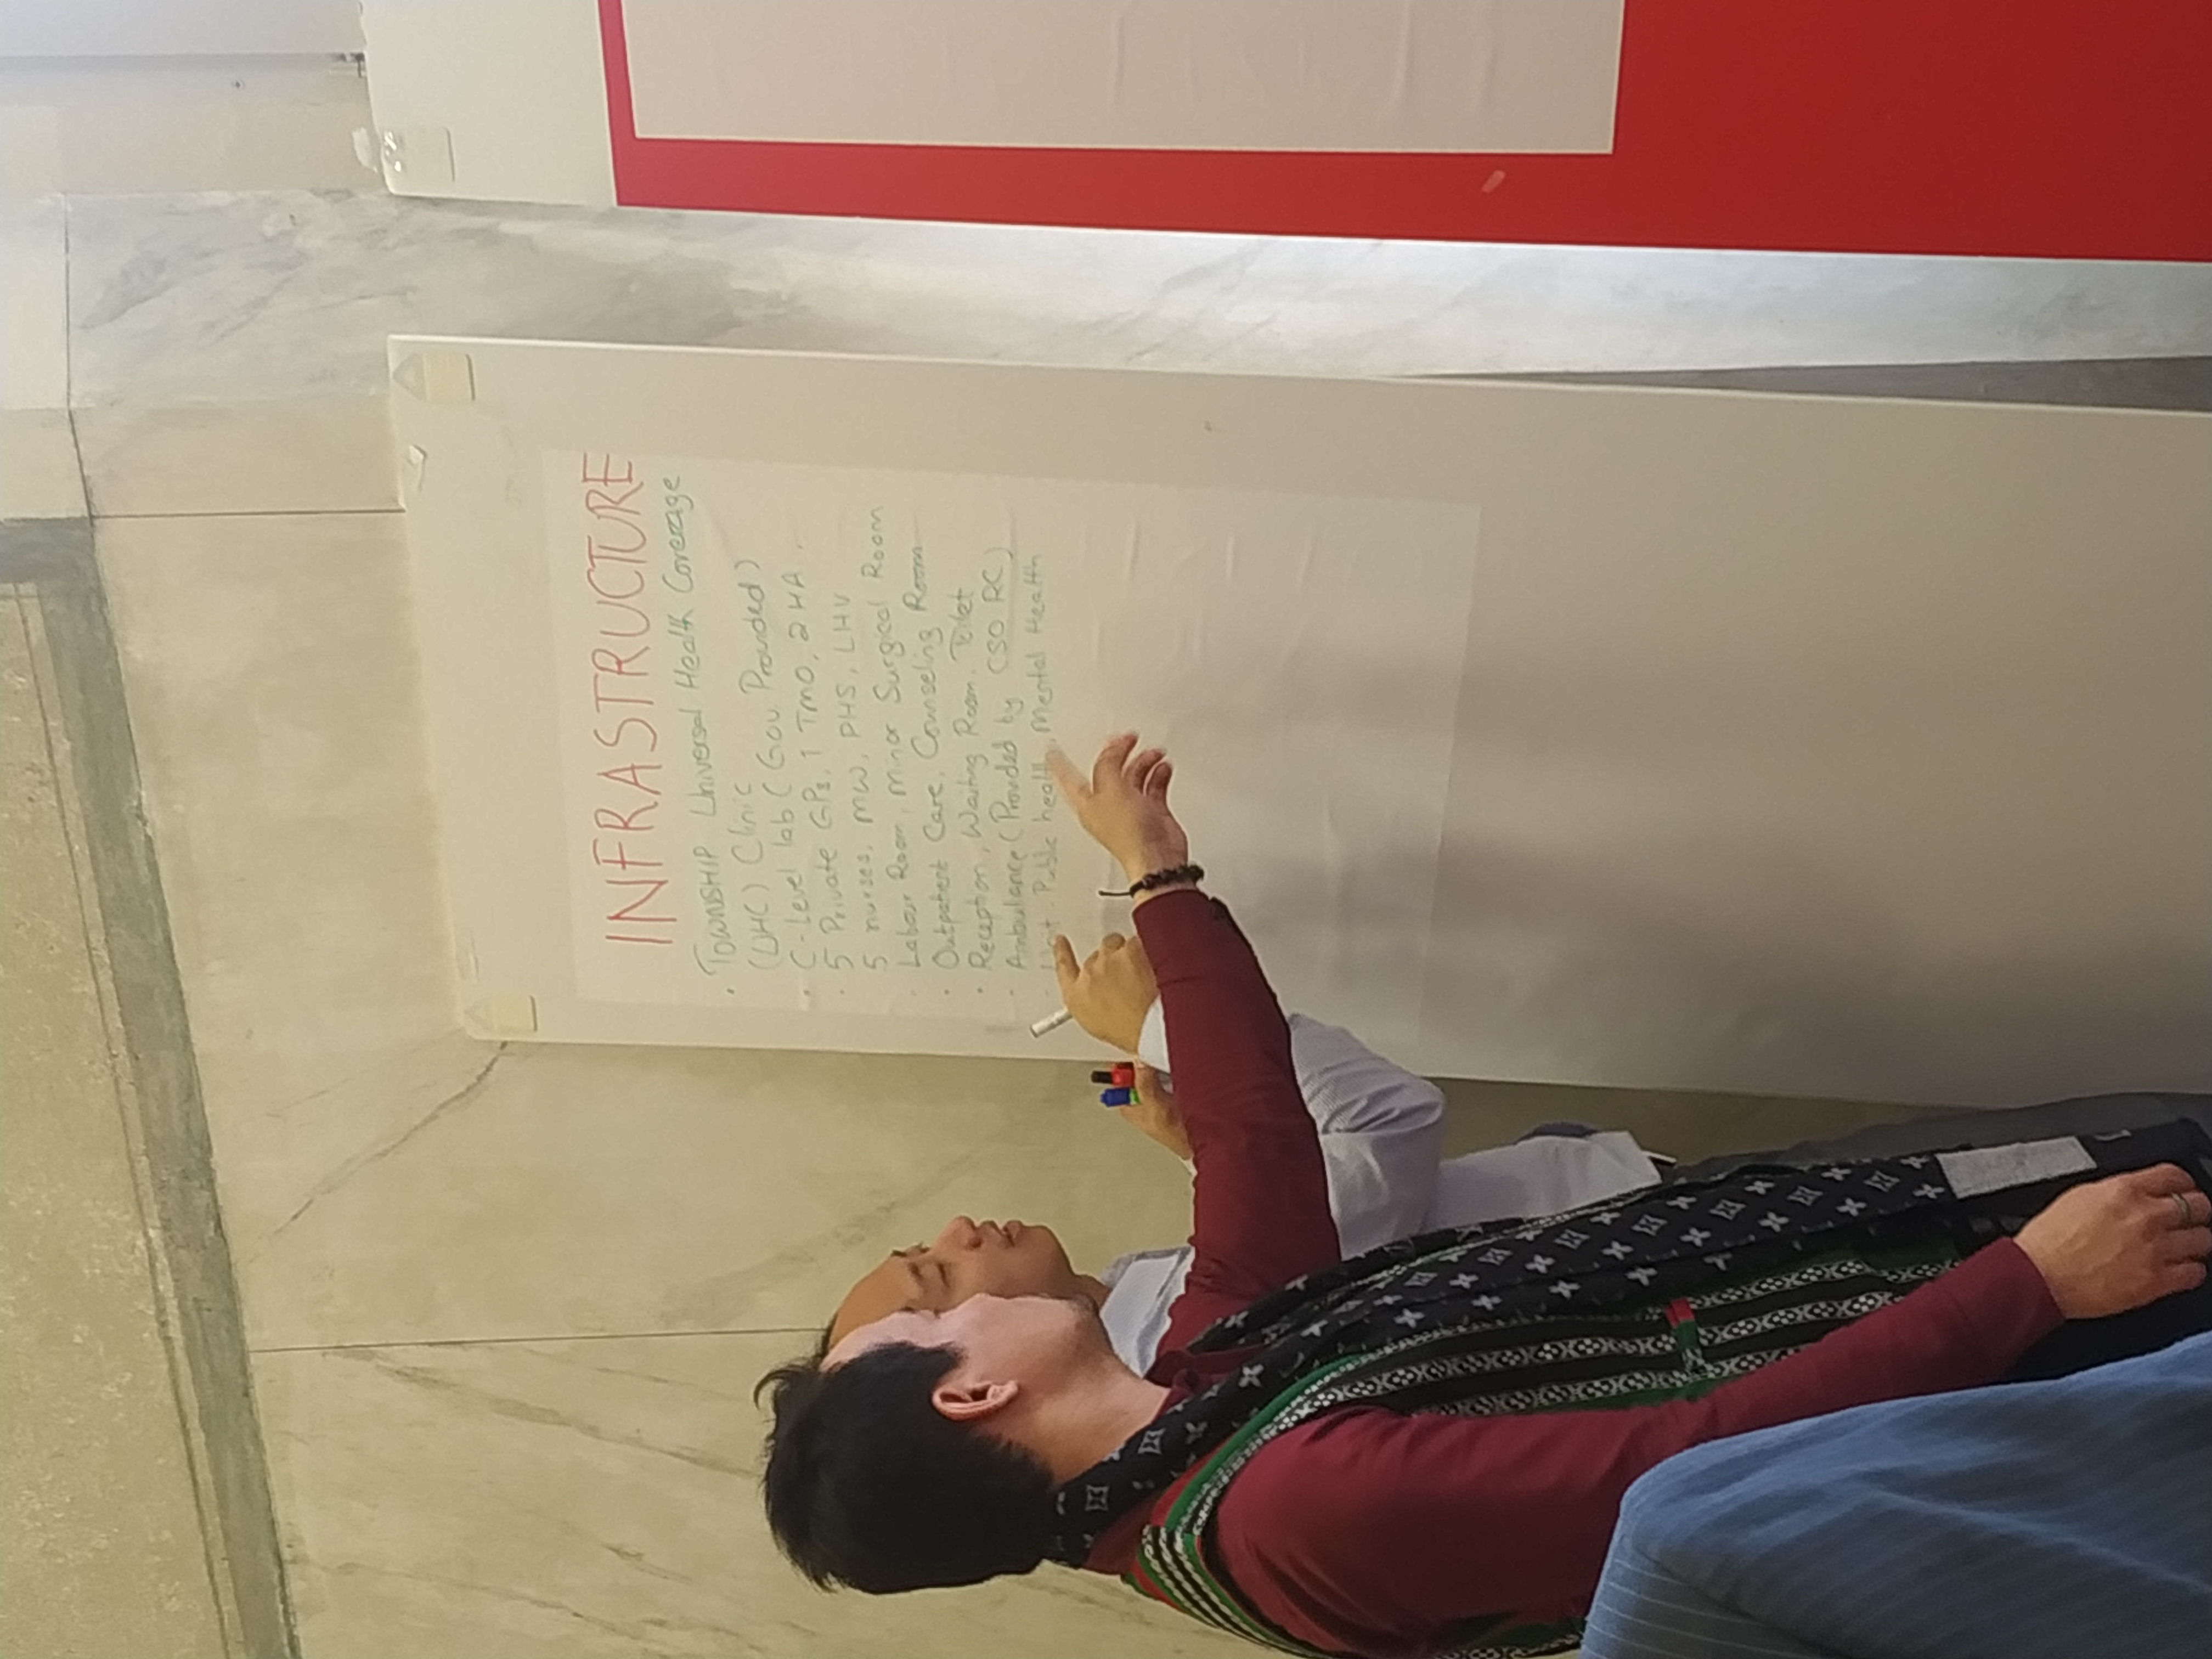 INFRASTRUCTURE
• TOWNSHIP Universal Health Coverage
(UHC) Clinic
• C-Level lab (Gov. Provided)
• 5 Private GPs, 1 TMO, 2 HA,
5 nurses, MW, PHS, LHV
• Labour Room, Minor Surgical Room
• Outpatient Care, Counseling Room
• Reception, Waiting Room, Toilet
• Ambulance (Provided by CSO RC)
• Unit. Public health, Mental Health